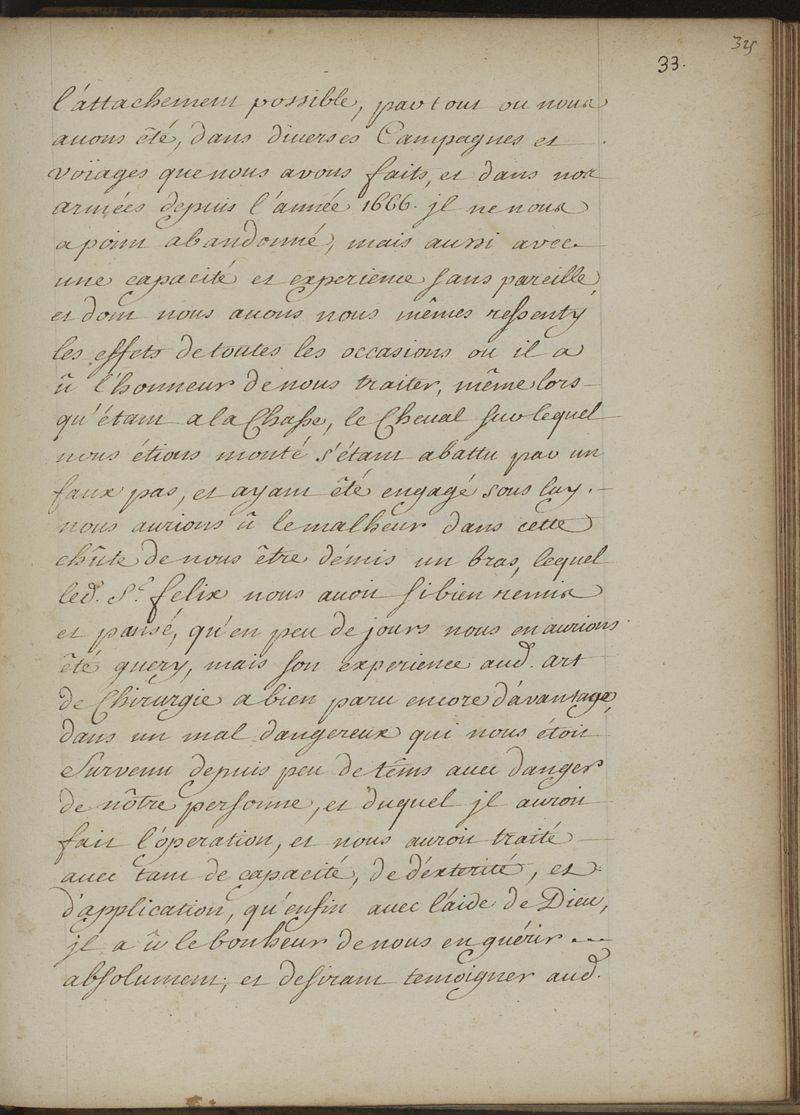 325
33.
l'attachement possible, partout ou nous
avons êté, dans diverses Campagnes et
voïages que nous avons faits, et dans nos
armées depuis l'année 1666. jl ne nous
a point abandonné, mais aussi avec
une capacité et experience sans pareille,
et dont nous auons nous mêmes ressenty
les effets de toutes les occasions ou il a
û l'honneur de nous traiter, même lors-
qu'étant a la Chasse, le Cheual sur lequel
nous étions monté s'étant abattu par un
faux pas, et ayant êté engagé sous luy.
nous aurions û le malheur dans cette
chûte de nous être démis un bras, lequel
led. Sr. felix nous auoit si bien remis
et pansé, qu'en peu de jours nous en aurions
êté guery, mais son experience aud. art
de Chirurgie a bien paru encore d'avantage,
dans un mal dangereux qui nous étoit
Survenu depuis peu de têms auec danger
de nôtre personne, et duquel jl auroit
fait l'operation, et nous auroit traité
auec tant de capacité, de déxterité, et
d'application, qu'enfin auec l'aide de Dieu,
jl a û le bonheur de nous en guérir
absolument, et desirant temoigner aud.